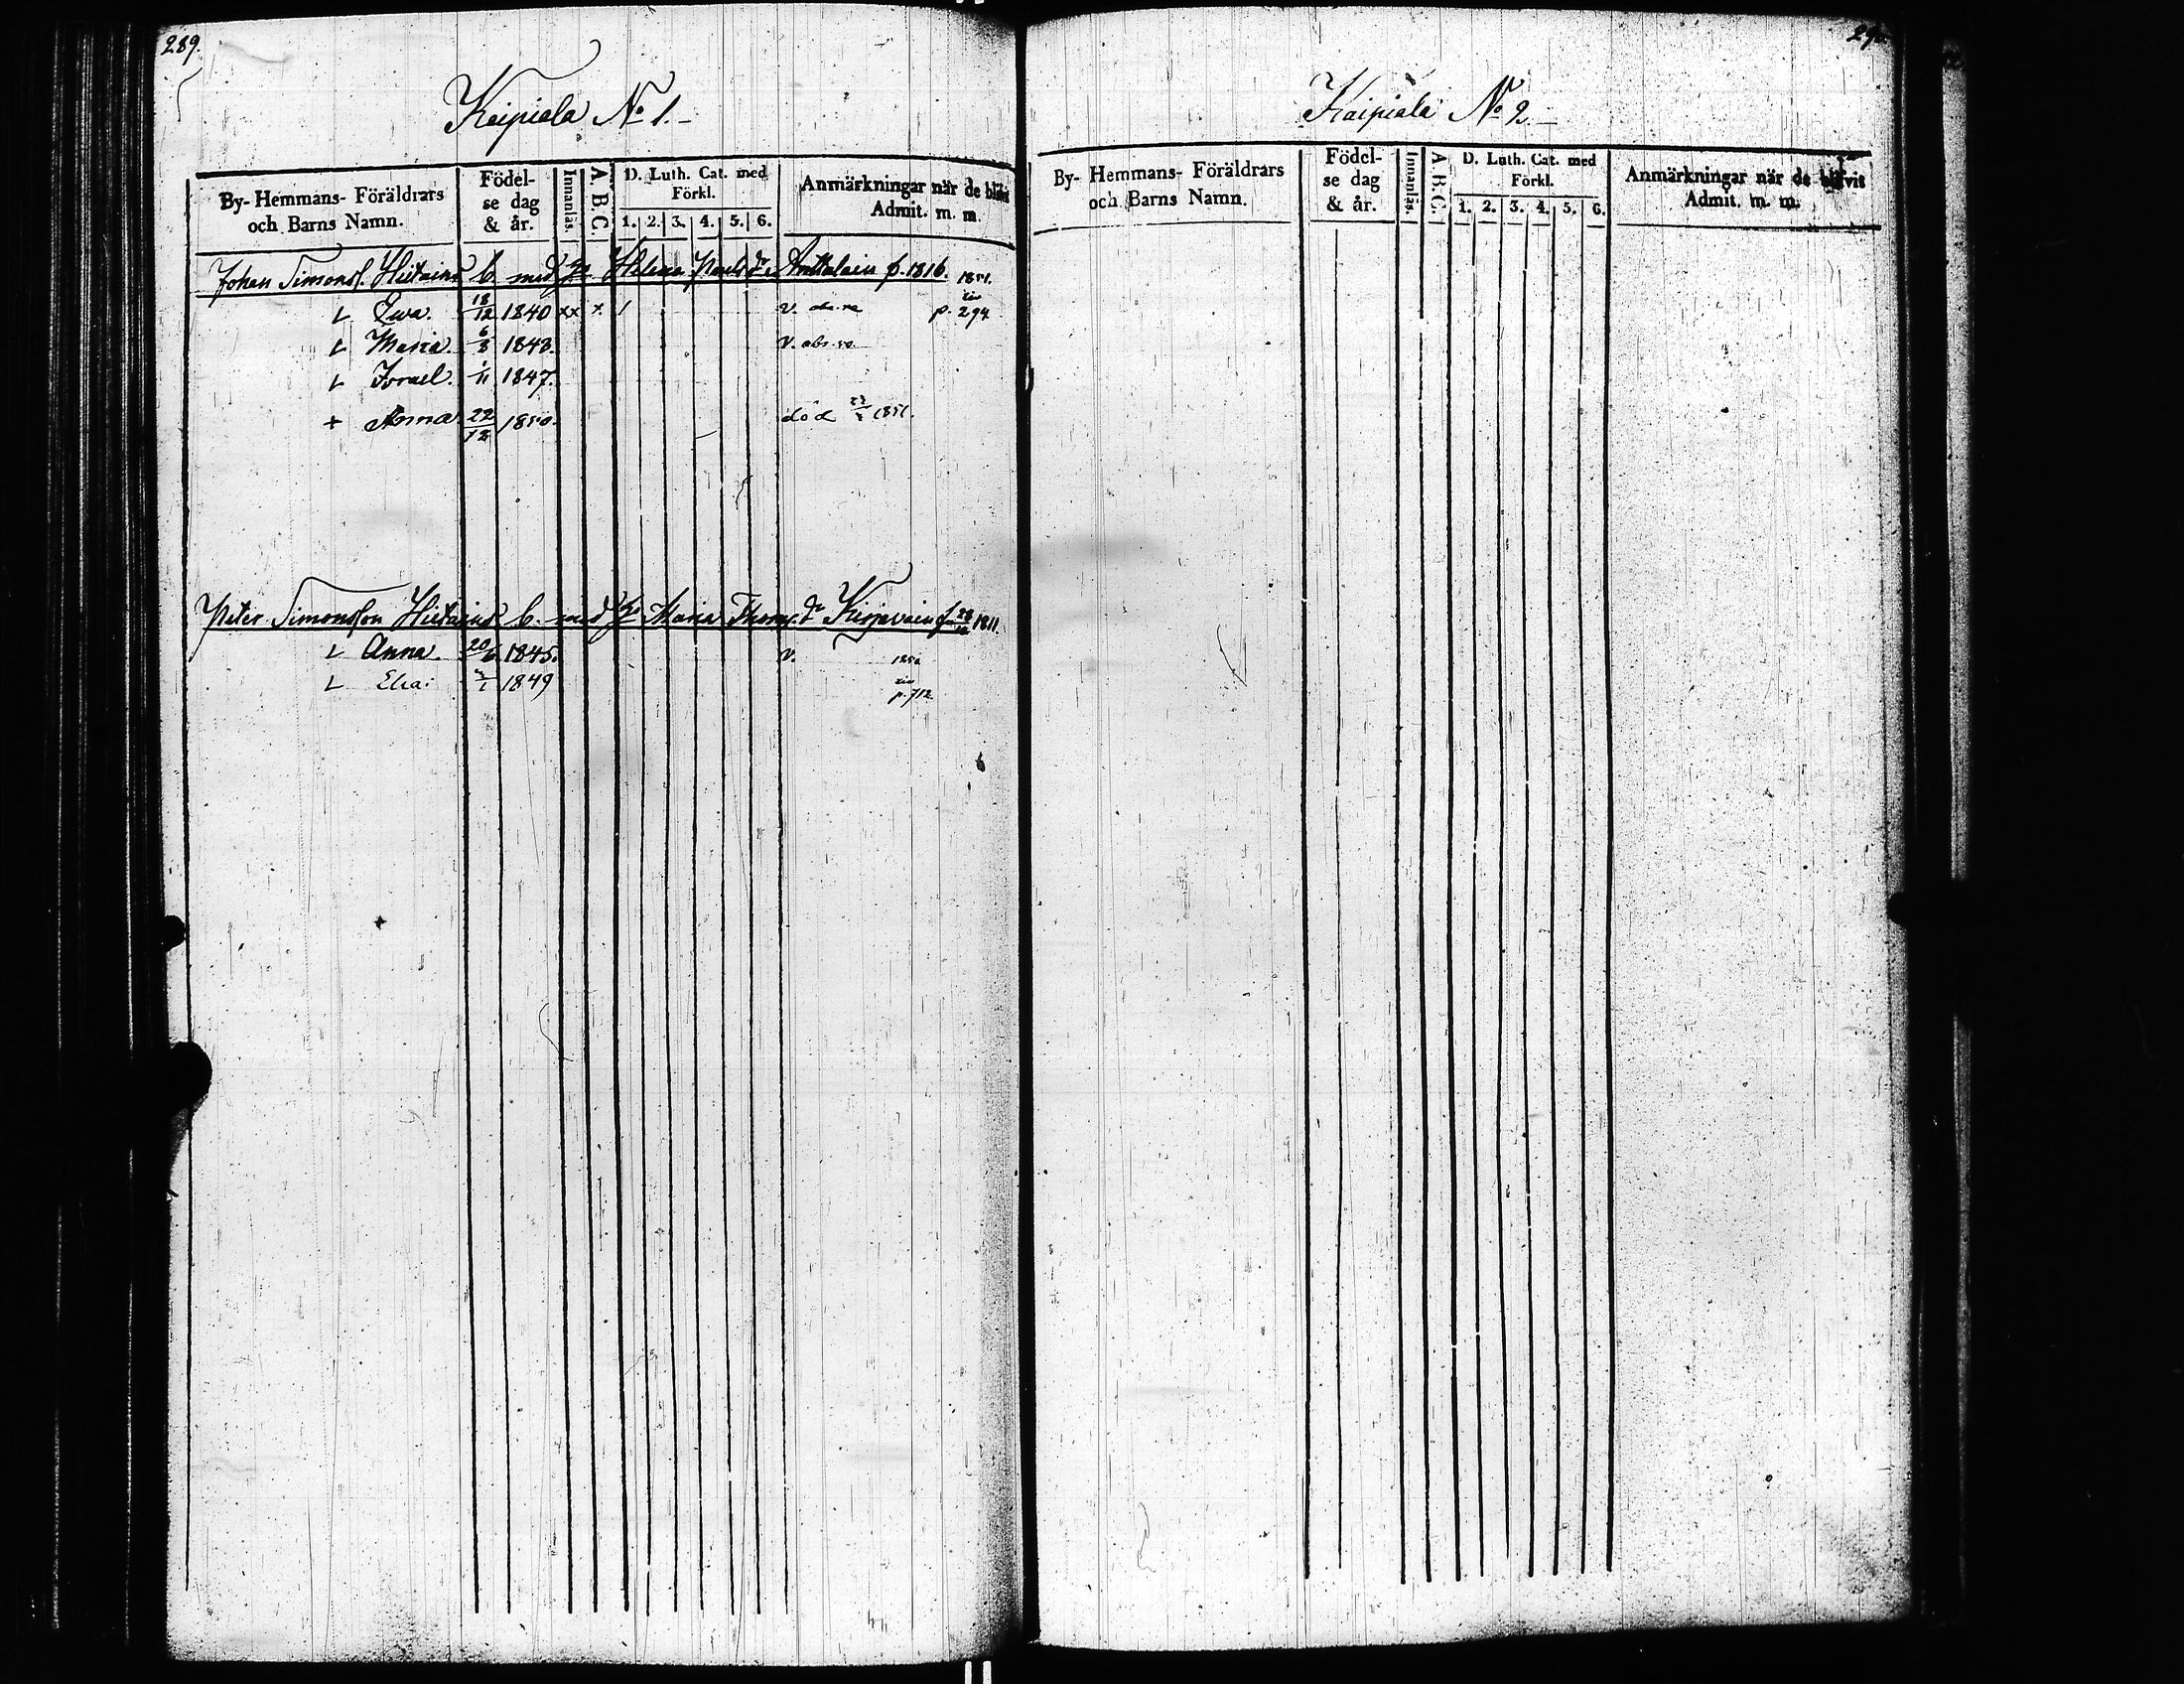 289.
Kaipiala No 1.
By- Hemmans- Föräldrars och Barns Namn.
Födel-se dag & år.
Innanläs.
A. B. C.
D. Luth. Cat. med Förkl.
1. 2. 3. 4. 5. 6.
Anmärkningar når de blifvit Admit. m. m.
Johan Simonss. Hietain b. med H Helena Paulsdr Anttalain f. 1816. 1851.
L Ewa. 18/12 1840 xx x / V. p. 294
L Maria. 6/8 1843. V. abs.
L Israel. 1/11 1847.
+ Anna. 22/12 1850. död 1851.
Peter Simonsson Hietain b. med H Maria Thomsdr Kirjavain f. 1811.
L Anna. 20/6 1845. V.
L Elsa: 1849 p. 712.
Kaipiala No 2.
By- Hemmans- Föräldrars och Barns Namn.
Födel-se dag & år.
Innanläs.
A. B. C.
D. Luth. Cat. med Förkl.
1. 2. 3. 4. 5. 6.
Anmärkningar når de blifvit Admit. m. m.